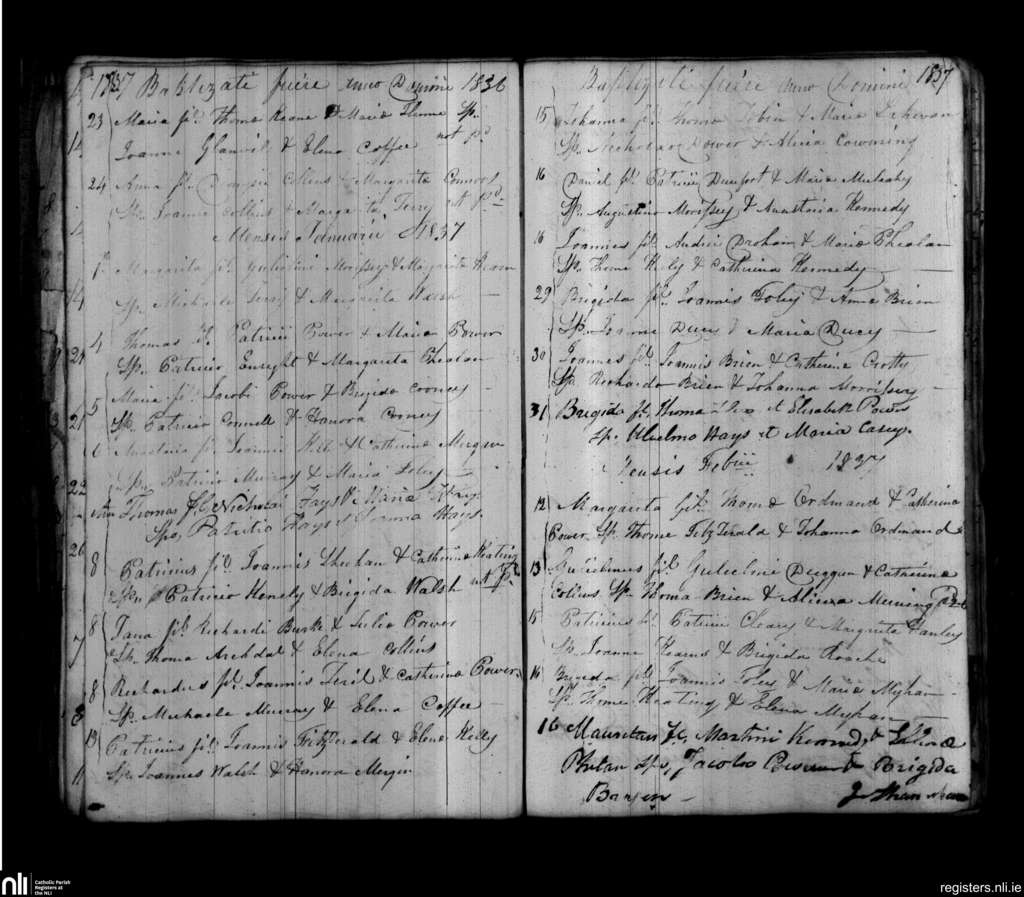 1837 Baptizati fuere anno Domini 1836
23 Maria fa. Thoma Keane & Maria Sp.
14 Joanne Glanvil & Elena Coffee not pd
24 Anna fa. Collins & Margarita Connors
Sp. Joanne Collins & Margarita Terry not pd
Mensis Januarii 1837
1 Margarita fa. Gulielmi Morissey & Margarita Hearn
14 Sp. Michaele Terry & Margarita Walsh
4 Thomas fs. Patricii Power & Maria Power
20 Sp. Patricio Enright & Margarita Phealan
5 Maria fa. Jacobi Power & Brigida Cooney
21 Sp. Patricio Connell & Hanora Cooney
6 Anastasia fa. Joannis & Catherine Mergin
22 Sp. Patricio Murray & Maria Foley
Thomas fs. Nicholai Hays & Maria
Sps. Patritio Hays et Hays
26
8 Patricius fs. Joannis Sheehan & Catherine Keating
Sps. Patricio Henely & Brigida Walsh not pd
8 Jana fa. Richardi Burke & Julia Power
7 Sp. Thoma Archdal & Elena Collins
8 Richardus fs. Joannis & Catherina Power
8 Sp. Michaele Murray & Elena Coffee
13 Patricius fs. Joannis FitzGerald & Elena Kelly
11 Sp. Joannes Walsh & Hanora Mergin
Baptizati fuere Anno Domini 1837
15 Johanna fa. Thoma Tobin & Maria
Sp. Nicholao Power & Alicia Cowming
16 Daniel fs. Patricii & Maria Mulcahy
Sp. Augustino Morissey & Anastasia Kennedy
16 Joannes fs. Andrei Drohan & Maria Phealan
Sp. Thoma Healy & Catherina Kennedy
29 Brigida fa. Joannis Foley & Anna Brien
Sp. Joanne Ducy & Maria Ducey
30 Joannes fs. Joannis Brien & Catherine Crotty
Sp. Richardo Brien & Johanna Morrissey
31 Brigida fa. Thoma et Elisabeth Power
Sp. Ulielmo Hays et Maria Casey
Mensis Febii 1837
12 Margarita fa. Thoma Ordmand & Catherina
Power Sp. Thoma FitzGerald & Johanna Ordmand
13 Gulielmus fs. Gulielmi Duggan & Catherina
Collins Sp. Thoma Brien & Merning
15 Patricius fs. Patricii Cleary & Margarita Hanley
Sp. Joanne Kearns & Brigida Roache
16 Brigida fa. Joannis Foley & Maria Myhan
Sp. Thoma Keating & Elena Myhan
16 Mauritius fs. Martini &
Phelan Sps, Jacobo & Brigida
nli Catholic Parish
Registers at
the NLI
registers.nli.ie